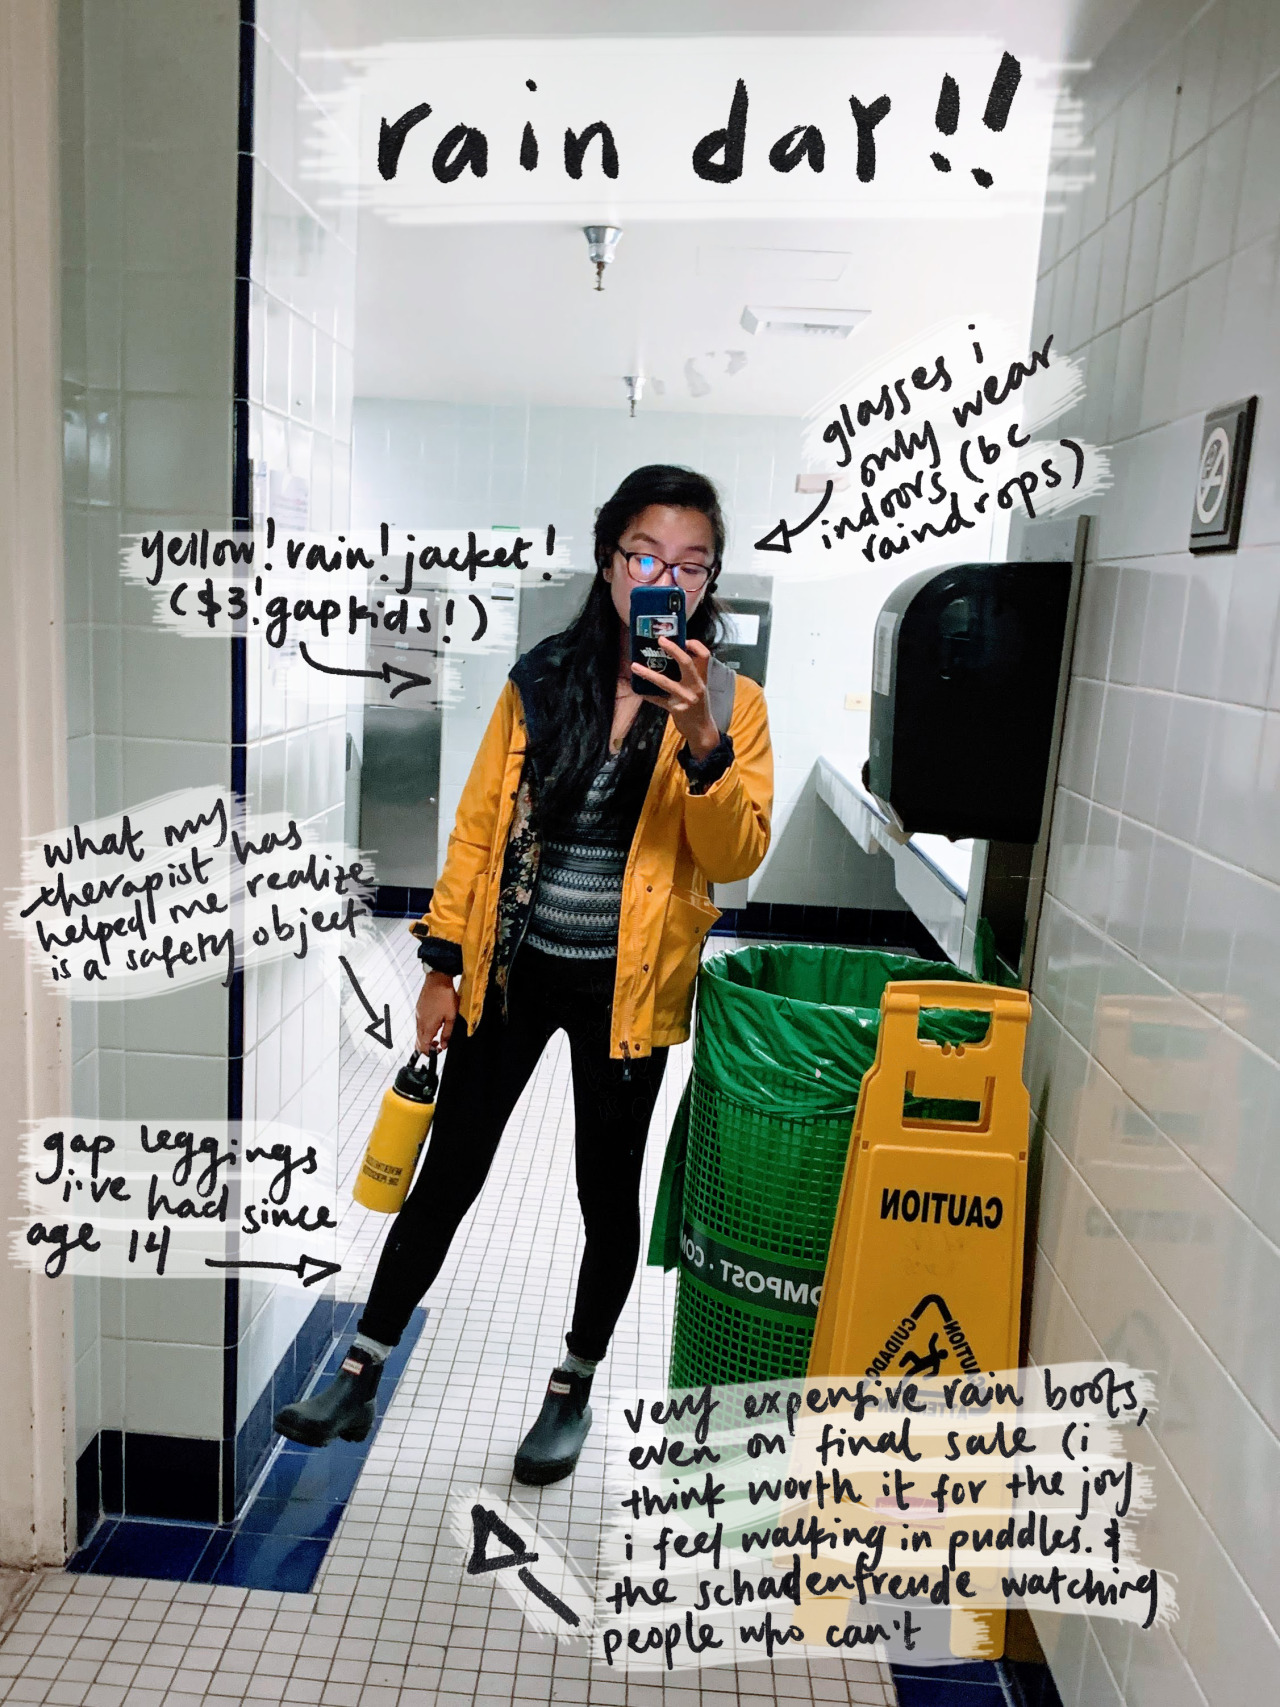 rain day!!
glasses i
only wear
indoors (bc
raindrops)
yellow! rain! jacket!
($3! gapkids!)
what my
therapist has
helped me realize
is a safety object
gap leggings
i've had since
age 14
CAUTION
COMPOST · CO
CUIDADO
CAUTION
very expensive rain boots,
even on final sale (i
think worth it for the joy
i feel walking in puddles. &
the schadenfreude watching
people who can't